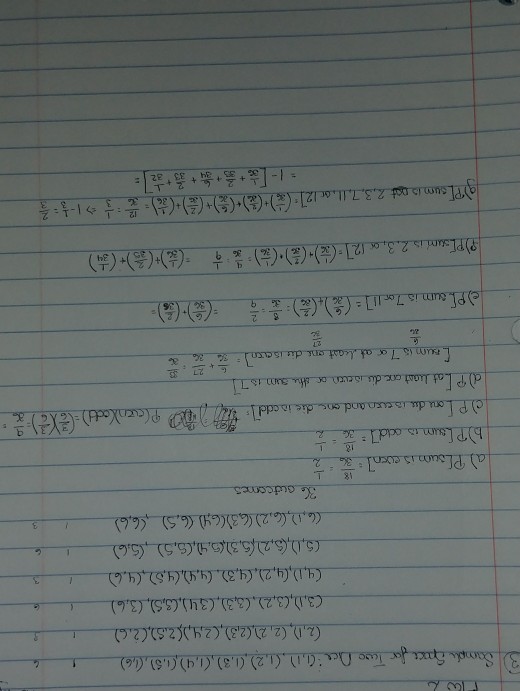 ③ Sample Space for Two Dice: (1,1), (1,2), (1,3), (1,4), (1,5), (1,6) 1 6
(2,1), (2,2), (2,3), (2,4), (2,5), (2,6) 1
(3,1), (3,2), (3,3), (3,4), (3,5), (3,6) 1 6
(4,1), (4,2), (4,3), (4,4), (4,5), (4,6) 1 3
(5,1), (5,2), (5,3), (5,4), (5,5), (5,6) 1 6
(6,1), (6,2), (6,3), (6,4), (6,5), (6,6) 1 3
36 outcomes
a) P[sum is even] = 18/36 = 1/2
b) P[sum is odd] = 18/36 = 1/2
c) P[one die is even and one die is odd] = P(even)(odd) = (3/6)(3/6) = 9/36 =
d) P[at least one die is even or the sum is 7]
[sum is 7 or at least one die is even] = 6/36 + 27/36 = 33/36
6/36 27/36
e) P[sum is 7 or 11] = (6/36)+(2/36) = 8/36 = 2/9 = (6/36)+(2/36) =
f) P[sum is 2, 3, or 12] = (1/36)+(2/36)+(1/36) = 4/36 = 1/9 = (1/36)+(2/35)+(1/34)
g) P[sum is not 2, 3, 7, 11, or 12] = (1/36)+(2/36)+(6/36)+(2/36)+(1/36) = 12/36 = 1/3 ⇒ 1 - 1/3 = 2/3
= 1 - [1/36 + 2/35 + 6/34 + 2/33 + 1/32] =